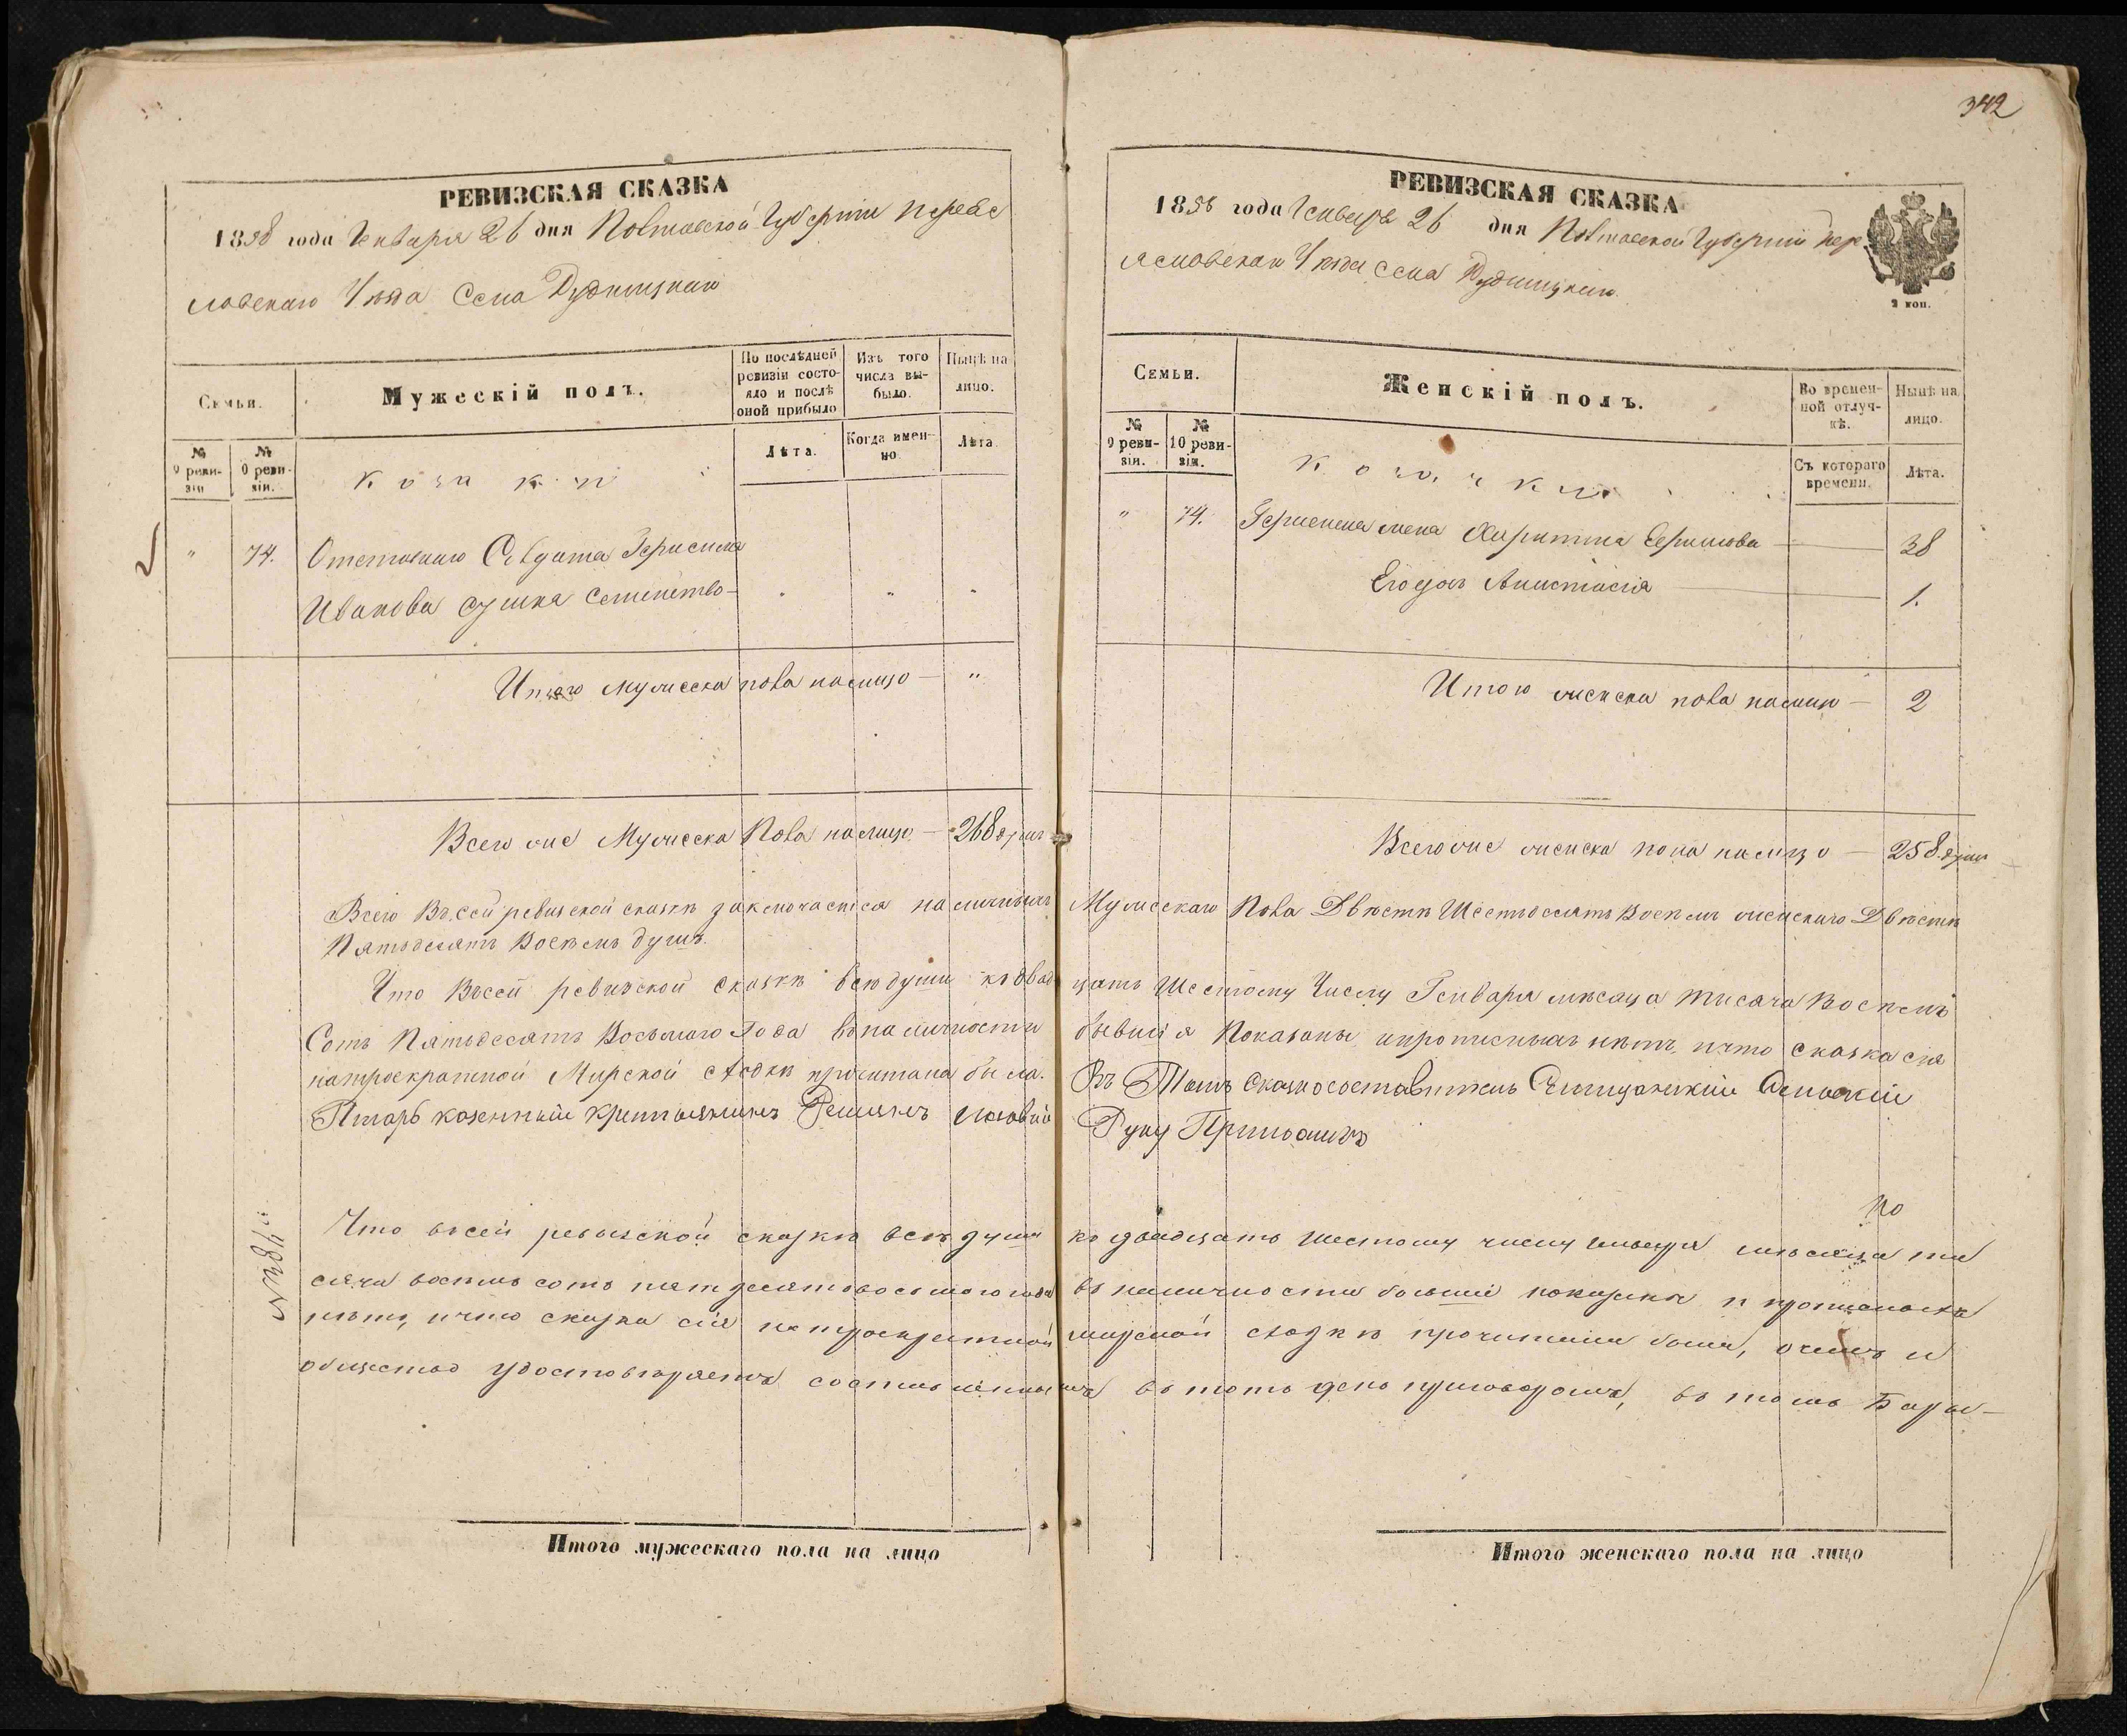 342
РЕВИЗСКАЯ СКАЗКА
1858 года Генваря 26 дня Полтавской Губерніи Переяс
лавскаго Уѣзда Села
Семьи.
Мужескій полъ.
По послѣдней ревизіи состояло и послѣ оной прибыло
Изъ того числа выбыло.
Нынѣ на лицо.
№ 9 ревизіи
№ 10 ревизіи.
Козаки
Лѣта.
Когда именно
Лѣта.
" 74. Отставнаго Солдата Герасима
Иванова Сушка Семейство — " " "
Итого мужеска пола налицо — "
Всего же Мужеска Пола налицо — 268 душъ
РЕВИЗСКАЯ СКАЗКА
1858 года Генваря 26 дня Полтавской Губерніи Пере
яславскаго Уѣзда Села
2 коп.
Семьи.
Женскій полъ.
Во временной отлучкѣ.
Нынѣ на лицо.
№ 9 ревизіи.
№ 10 ревизіи.
Козачки
Съ котораго времени.
Лѣта.
" 74. Герасима жена Харитина — 38
Его дочь Анастасія — 1.
Итого женска пола налицо — 2
Всего же женска пола налицо — 258 душъ
Всего Въ сей ревизской сказкѣ заключается наличныхъ Мужескаго Пола Двѣстѣ Шестьдесятъ Восемь женскаго Двѣстѣ
Пятьдесятъ Восемь душъ.
Что Въ сей ревизской сказкѣ всѣ души къ двадцать Шестому Числу Генваря мѣсяца тисяча Восемь
Сотъ Пятьдесятъ Восьмаго Года въ наличности бывшія Показаны и прописныхъ нѣтъ, и что сказка сія
на троекратной Мирской сходкѣ прочитана была. Въ Томъ Сказкосоставитель
казенный Руку Приложилъ
№ 384й
По
Что въ сей ревизской сказкѣ всѣ души къ двадцать шестому числу генваря мѣсяца ты
сяча восемь сотъ пятдесятъ восьмого года въ наличности бывшіе показаны и прописныхъ
нѣтъ, и что сказка сія на троекратной мирской сходкѣ прочитана была, о чемъ и
общество удостовѣряетъ составленнымъ въ тотъ день приговоромъ, въ томъ
Итого мужескаго пола на лицо
Итого женскаго пола на лицо